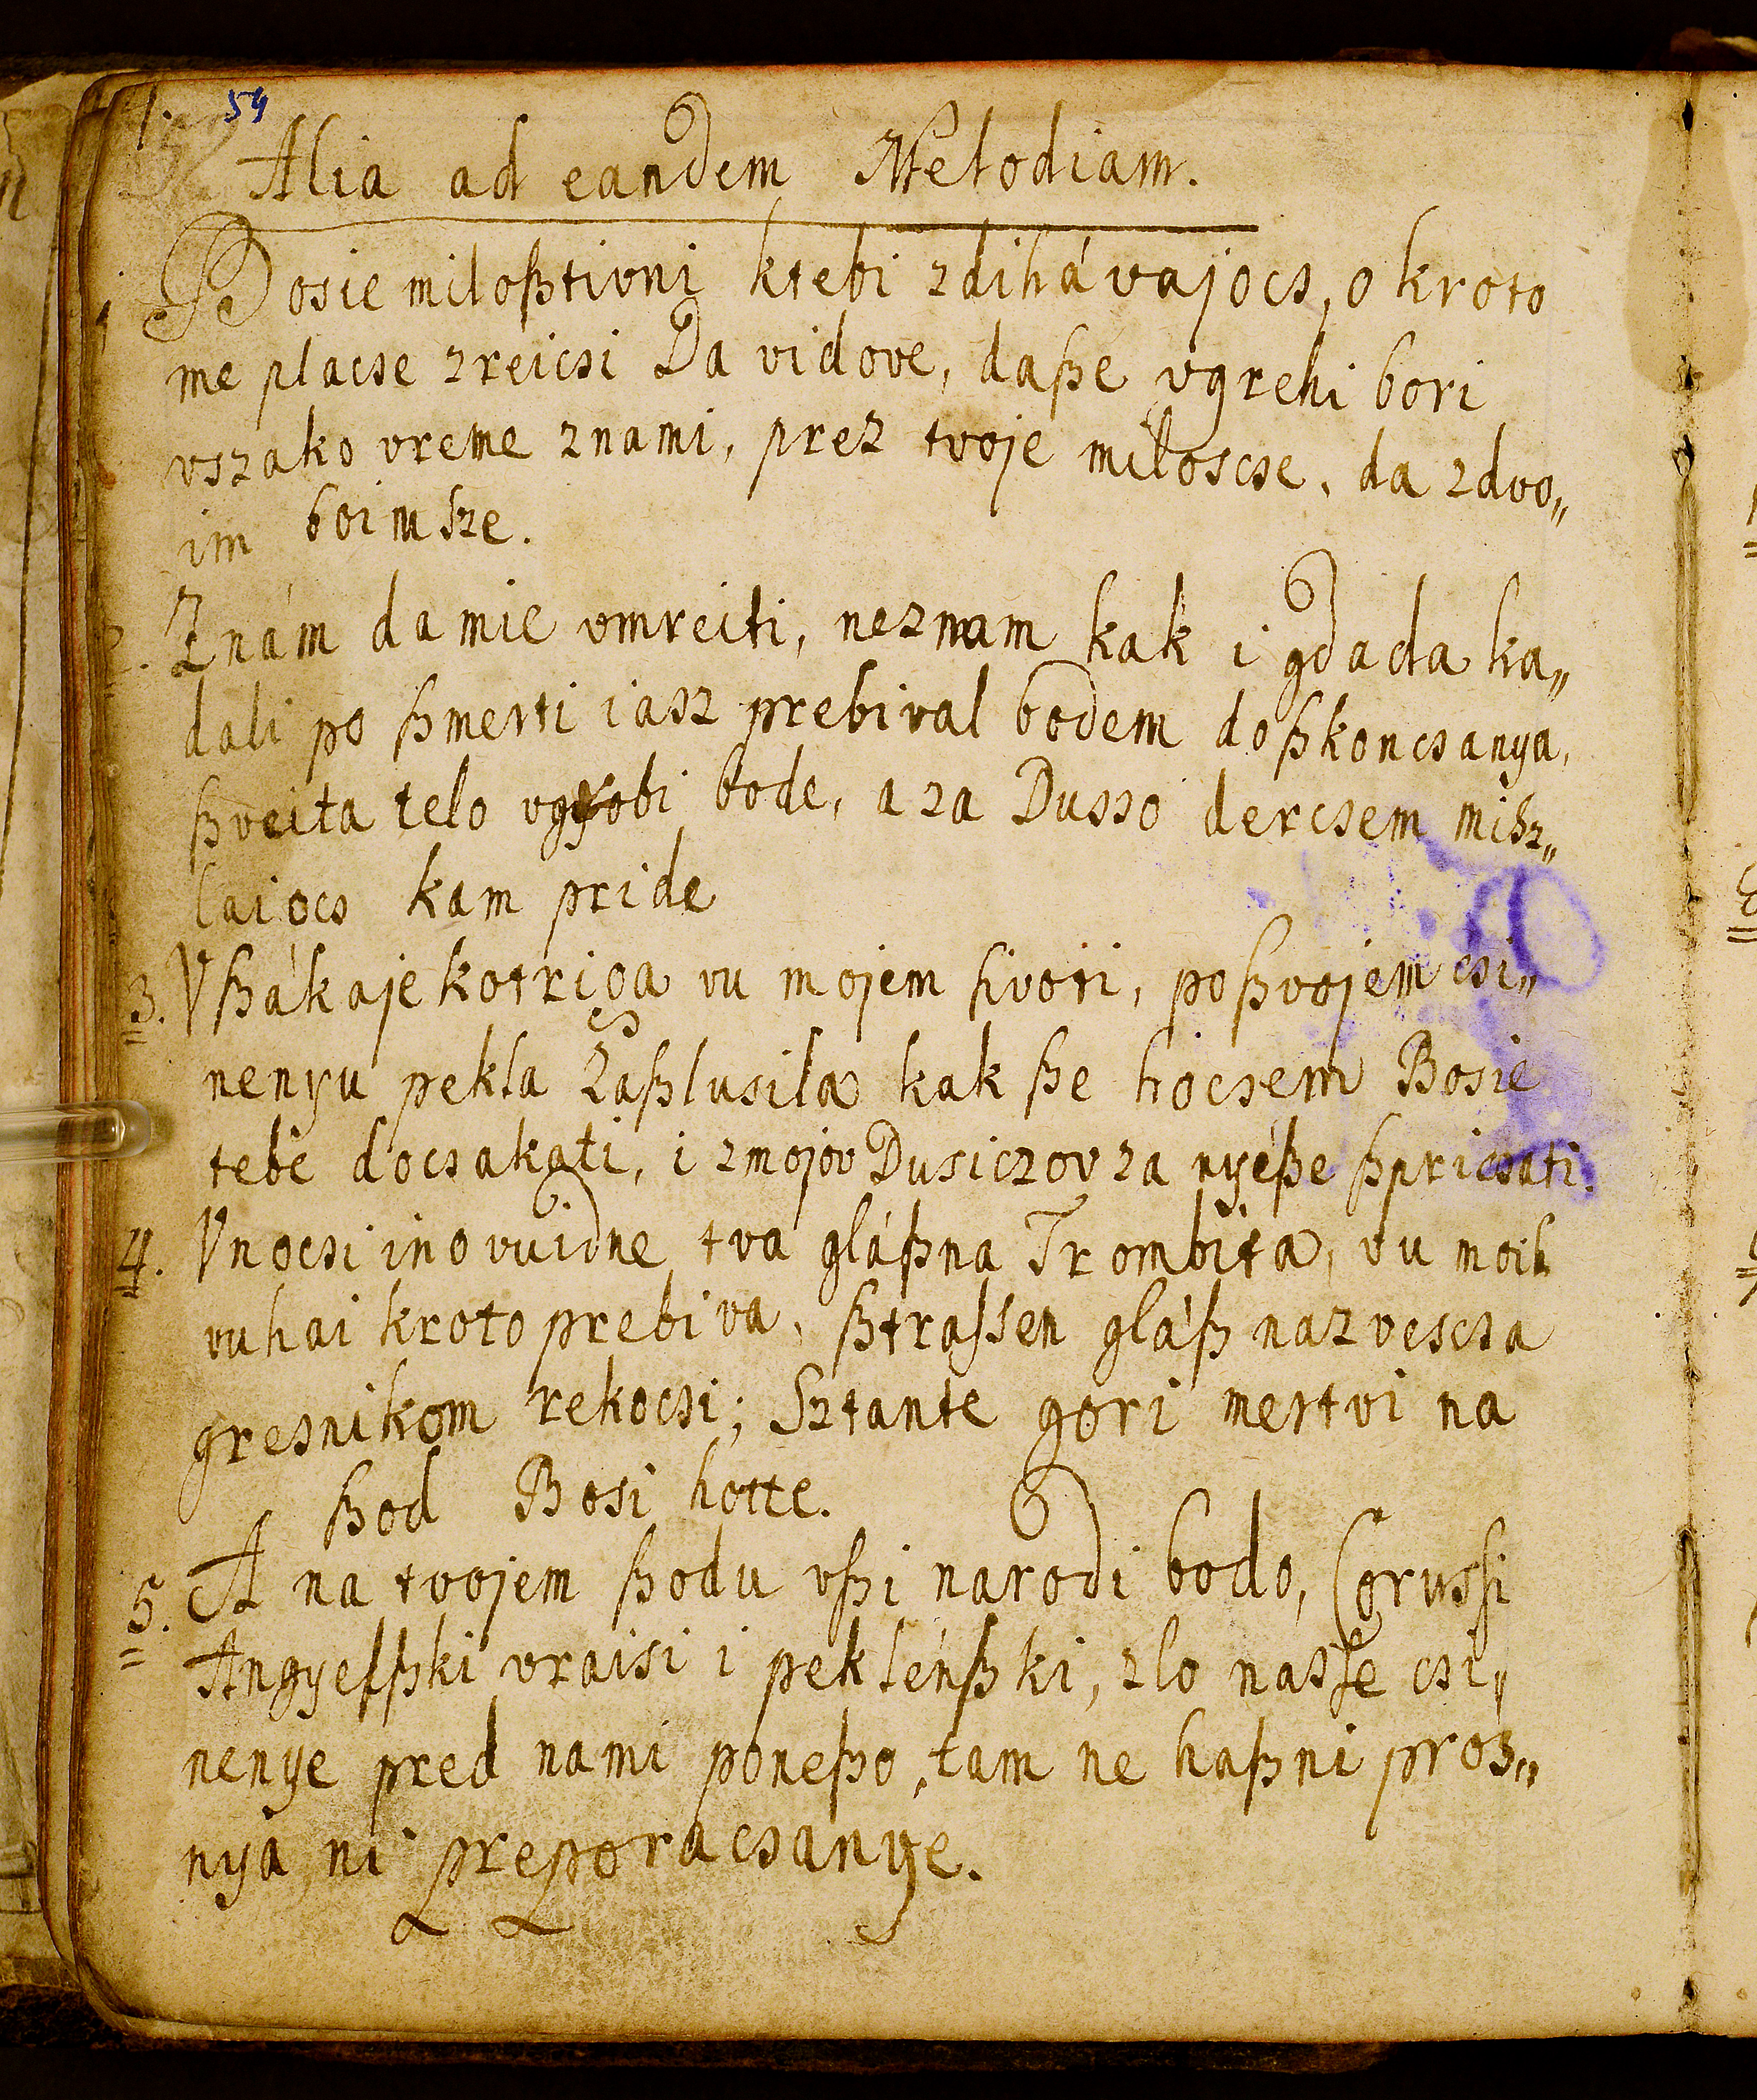 54
Alia ad eandem Melodiam.
1 Bosie miloßtivni ktebi zdihávajocs, o kroto
me placse zreicsi Davidove, daße vgrehi bori
vszako vreme znami, prez tvoje miloscse, da zdvo„
im boimsze.
2. Znám da mie vmreiti, neznam kak i gda da ka„
dali po ßmerti iasz prebival bodem doßkoncsanya,
ßveita telo vgrobi bode, a za Dusso dercsem misz„
laiocs kam pride
3. Vßáka je kotriga vu mojem sivoti, poßvojem csi„
nenyu pekla zaßlusila kak ße hocsem Bosie
tebé docsakati, i zmojov Dusiczov za nyéße ßpricsati.
4. Vnocsi ino vuidne tva gláßna Trombita, vu moih
vuhai kroto prebiva, ßtrassen gláß nazvescsa
gresnikom rekocsi; Sztante gori mertvi na
ßod Bosi hotte.
5. A na tvojem ßodu vßi narodi bodo, Corussi
Angyelßki vraisi i peklénßki, zlo nasse csi„
nenye pred nami poneßo, tam ne haßni pros„
nya, ni preporacsanye.